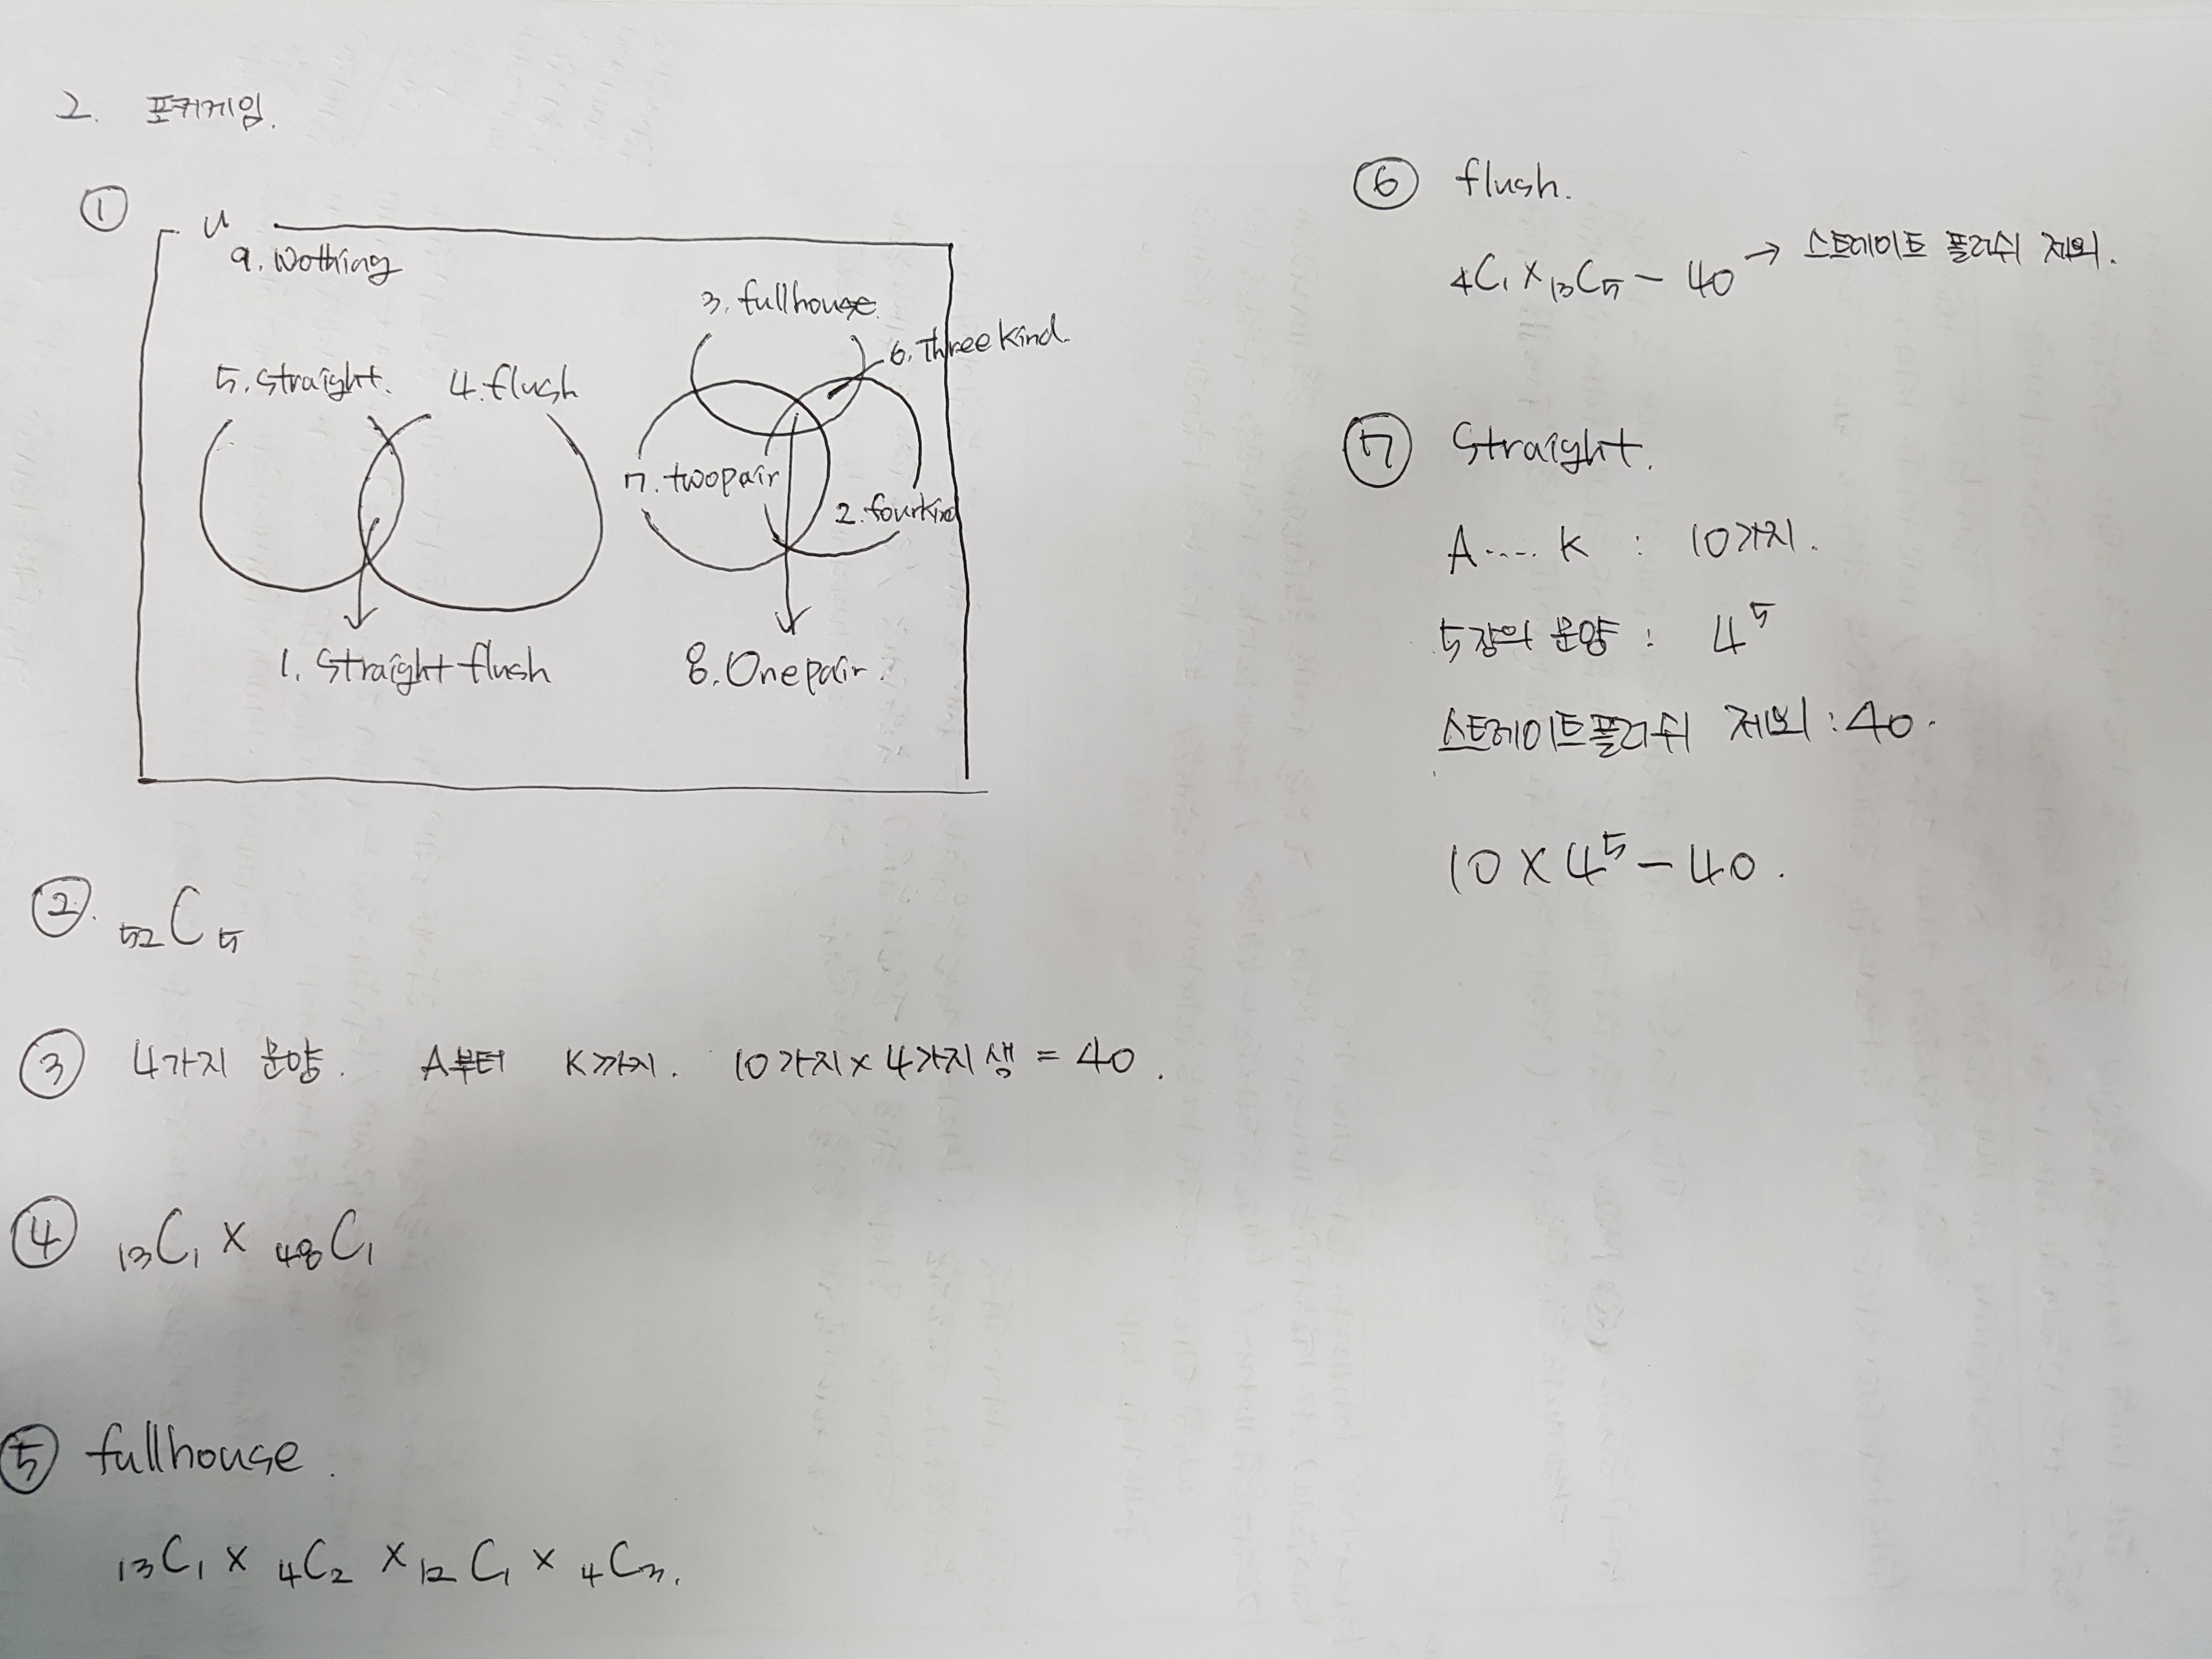 2. 포커게임.
①
U
9. Nothing
5. straight.
4. flush
1. straight flush
3. fullhouse
6. Three kind
7. twopair
2. fourkind
8. One pair.
②. 52C5
③ 4가지 문양. A부터 K까지. 10가지 x 4가지 색 = 40.
④ 13C1 x 48C1
⑤ fullhouse.
13C1 x 4C2 x 12C1 x 4C3.
⑥ flush.
4C1 x 13C5 - 40 → 스트레이트 플러쉬 제외.
⑦ Straight.
A .... K : 10가지.
5장의 문양 : 4^5
스트레이트플러쉬 제외 : 40.
10 x 4^5 - 40.